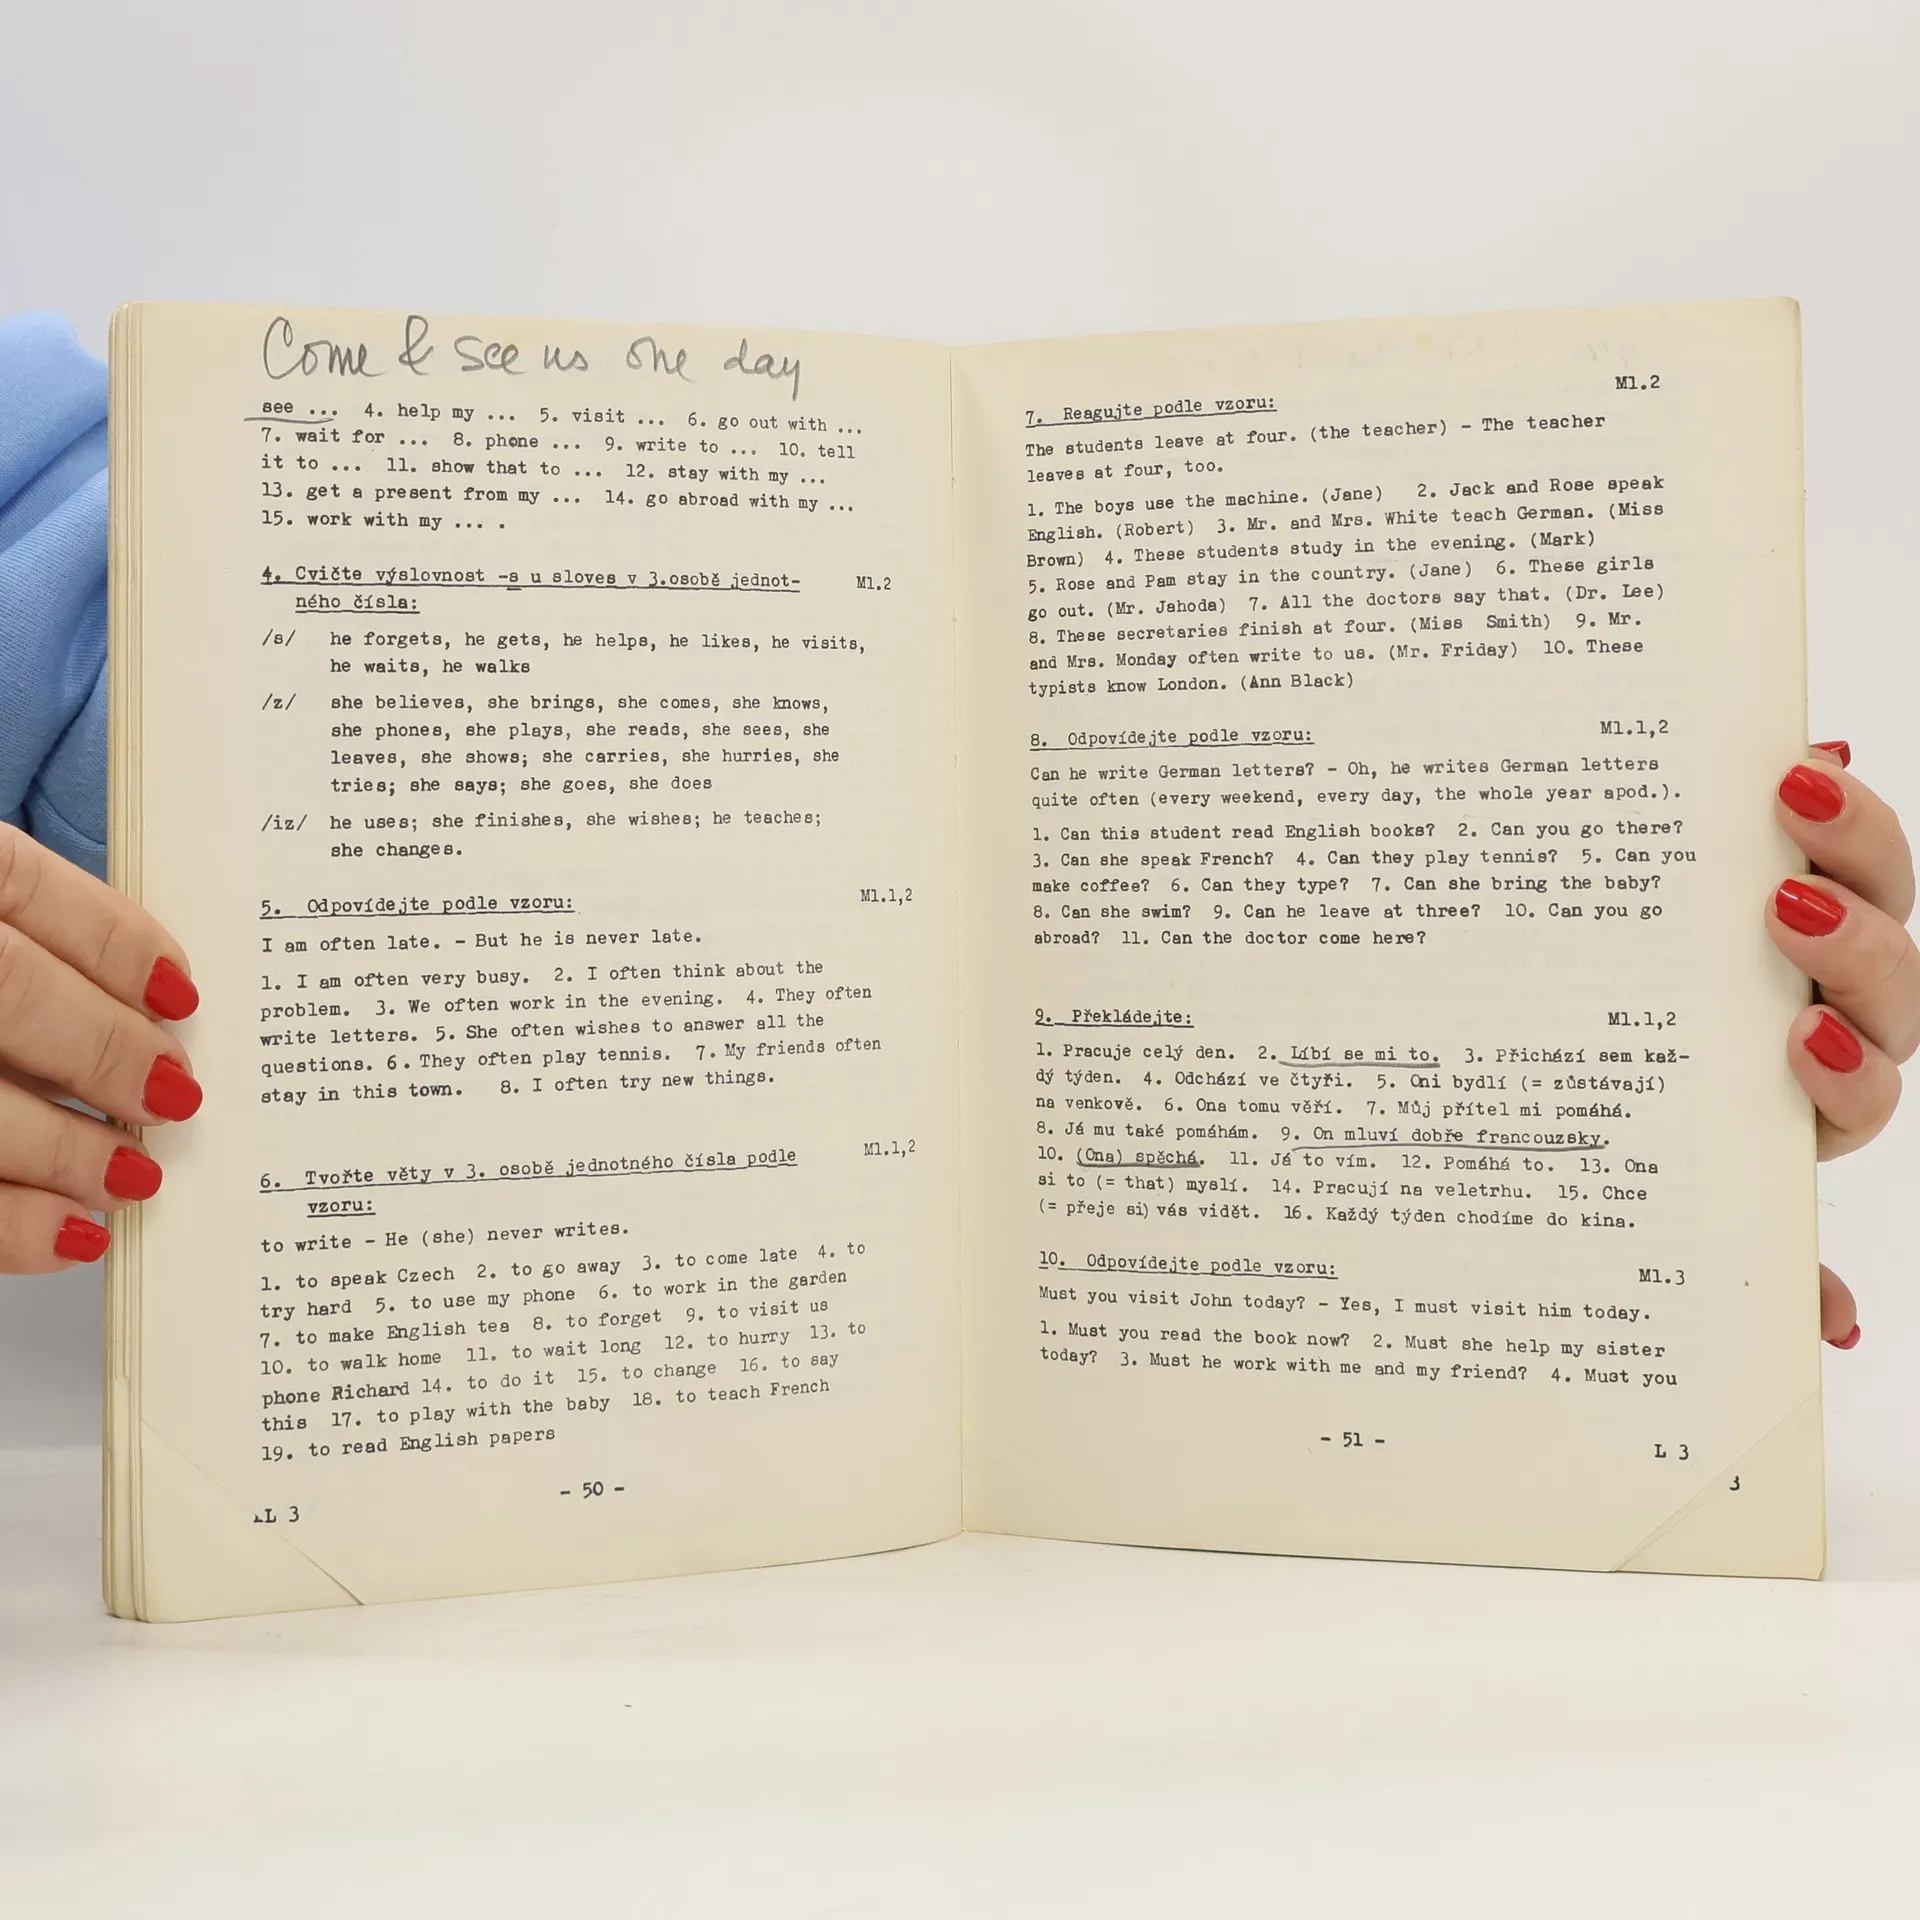 Come & see us one day
see ... 4. help my ... 5. visit ... 6. go out with ...
7. wait for ... 8. phone ... 9. write to ... 10. tell
it to ... 11. show that to ... 12. stay with my ...
13. get a present from my ... 14. go abroad with my ...
15. work with my ... .
4. Cvičte výslovnost -s u sloves v 3.osobě jednot- M1.2
ného čísla:
/s/ he forgets, he gets, he helps, he likes, he visits,
he waits, he walks
/z/ she believes, she brings, she comes, she knows,
she phones, she plays, she reads, she sees, she
leaves, she shows; she carries, she hurries, she
tries; she says; she goes, she does
/iz/ he uses; she finishes, she wishes; he teaches;
she changes.
5. Odpovídejte podle vzoru: M1.1,2
I am often late. - But he is never late.
1. I am often very busy. 2. I often think about the
problem. 3. We often work in the evening. 4. They often
write letters. 5. She often wishes to answer all the
questions. 6. They often play tennis. 7. My friends often
stay in this town. 8. I often try new things.
6. Tvořte věty v 3. osobě jednotného čísla podle M1.1,2
vzoru:
to write - He (she) never writes.
1. to speak Czech 2. to go away 3. to come late 4. to
try hard 5. to use my phone 6. to work in the garden
7. to make English tea 8. to forget 9. to visit us
10. to walk home 11. to wait long 12. to hurry 13. to
phone Richard 14. to do it 15. to change 16. to say
this 17. to play with the baby 18. to teach French
19. to read English papers
- 50 -
L 3
M1.2
7. Reagujte podle vzoru:
The students leave at four. (the teacher) - The teacher
leaves at four, too.
1. The boys use the machine. (Jane) 2. Jack and Rose speak
English. (Robert) 3. Mr. and Mrs. White teach German. (Miss
Brown) 4. These students study in the evening. (Mark)
5. Rose and Pam stay in the country. (Jane) 6. These girls
go out. (Mr. Jahoda) 7. All the doctors say that. (Dr. Lee)
8. These secretaries finish at four. (Miss Smith) 9. Mr.
and Mrs. Monday often write to us. (Mr. Friday) 10. These
typists know London. (Ann Black)
8. Odpovídejte podle vzoru: M1.1,2
Can he write German letters? - Oh, he writes German letters
quite often (every weekend, every day, the whole year apod.).
1. Can this student read English books? 2. Can you go there?
3. Can she speak French? 4. Can they play tennis? 5. Can you
make coffee? 6. Can they type? 7. Can she bring the baby?
8. Can she swim? 9. Can he leave at three? 10. Can you go
abroad? 11. Can the doctor come here?
9. Překládejte: M1.1,2
1. Pracuje celý den. 2. Líbí se mi to. 3. Přichází sem kaž-
dý týden. 4. Odchází ve čtyři. 5. Oni bydlí (= zůstávají)
na venkově. 6. Ona tomu věří. 7. Můj přítel mi pomáhá.
8. Já mu také pomáhám. 9. On mluví dobře francouzsky.
10. (Ona) spěchá. 11. Já to vím. 12. Pomáhá to. 13. Ona
si to (= that) myslí. 14. Pracují na veletrhu. 15. Chce
(= přeje si) vás vidět. 16. Každý týden chodíme do kina.
10. Odpovídejte podle vzoru: M1.3
Must you visit John today? - Yes, I must visit him today.
1. Must you read the book now? 2. Must she help my sister
today? 3. Must he work with me and my friend? 4. Must you
- 51 -
L 3
3